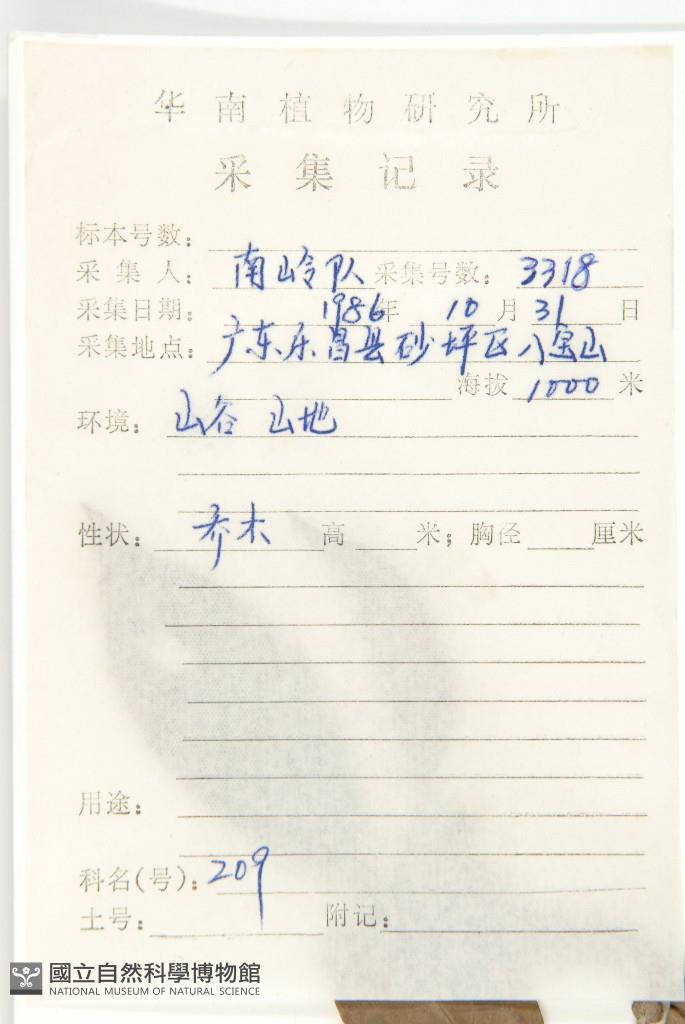 华南植物研究所
采集记录
标本号数：
采集人：南岭队 采集号数：3318
采集日期：1986年10月31日
采集地点：广东乐昌县砂坪区八宝山
海拔 1000 米
环境：山谷 山地
性状：乔木 高 米；胸径 厘米
用途：
科名(号)：209
土号： 附记：
國立自然科學博物館
NATIONAL MUSEUM OF NATURAL SCIENCE